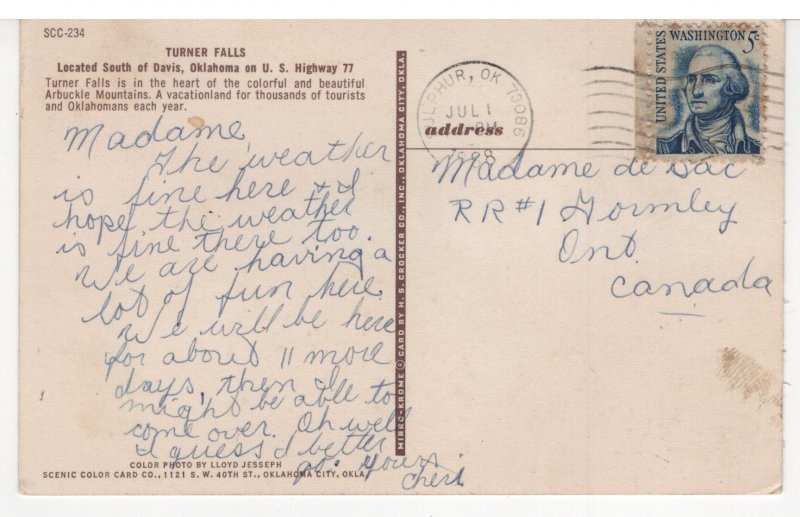 SCC-234
TURNER FALLS
Located South of Davis, Oklahoma on U. S. Highway 77
Turner Falls is in the heart of the colorful and beautiful
Arbuckle Mountains. A vacationland for thousands of tourists
and Oklahomans each year.
Madame,
The weather
is fine here & I
hope the weather
is fine there too.
We are having a
lot of fun here.
We will be here
for about 11 more
days, then I
might be able to
come over. Oh well
I guess I better
go. Yours
Cheri
COLOR PHOTO BY LLOYD JESSEPH
SCENIC COLOR CARD CO., 1121 S. W. 40TH ST., OKLAHOMA CITY, OKLA.
MIRRO-KROME ® CARD BY H. S. CROCKER CO., INC., OKLAHOMA CITY, OKLA.
SULPHUR, OK 73086
JUL 1
PM
1968
address
UNITED STATES
WASHINGTON 5c
Madame de Sac
RR#1 Gormley
Ont.
Canada